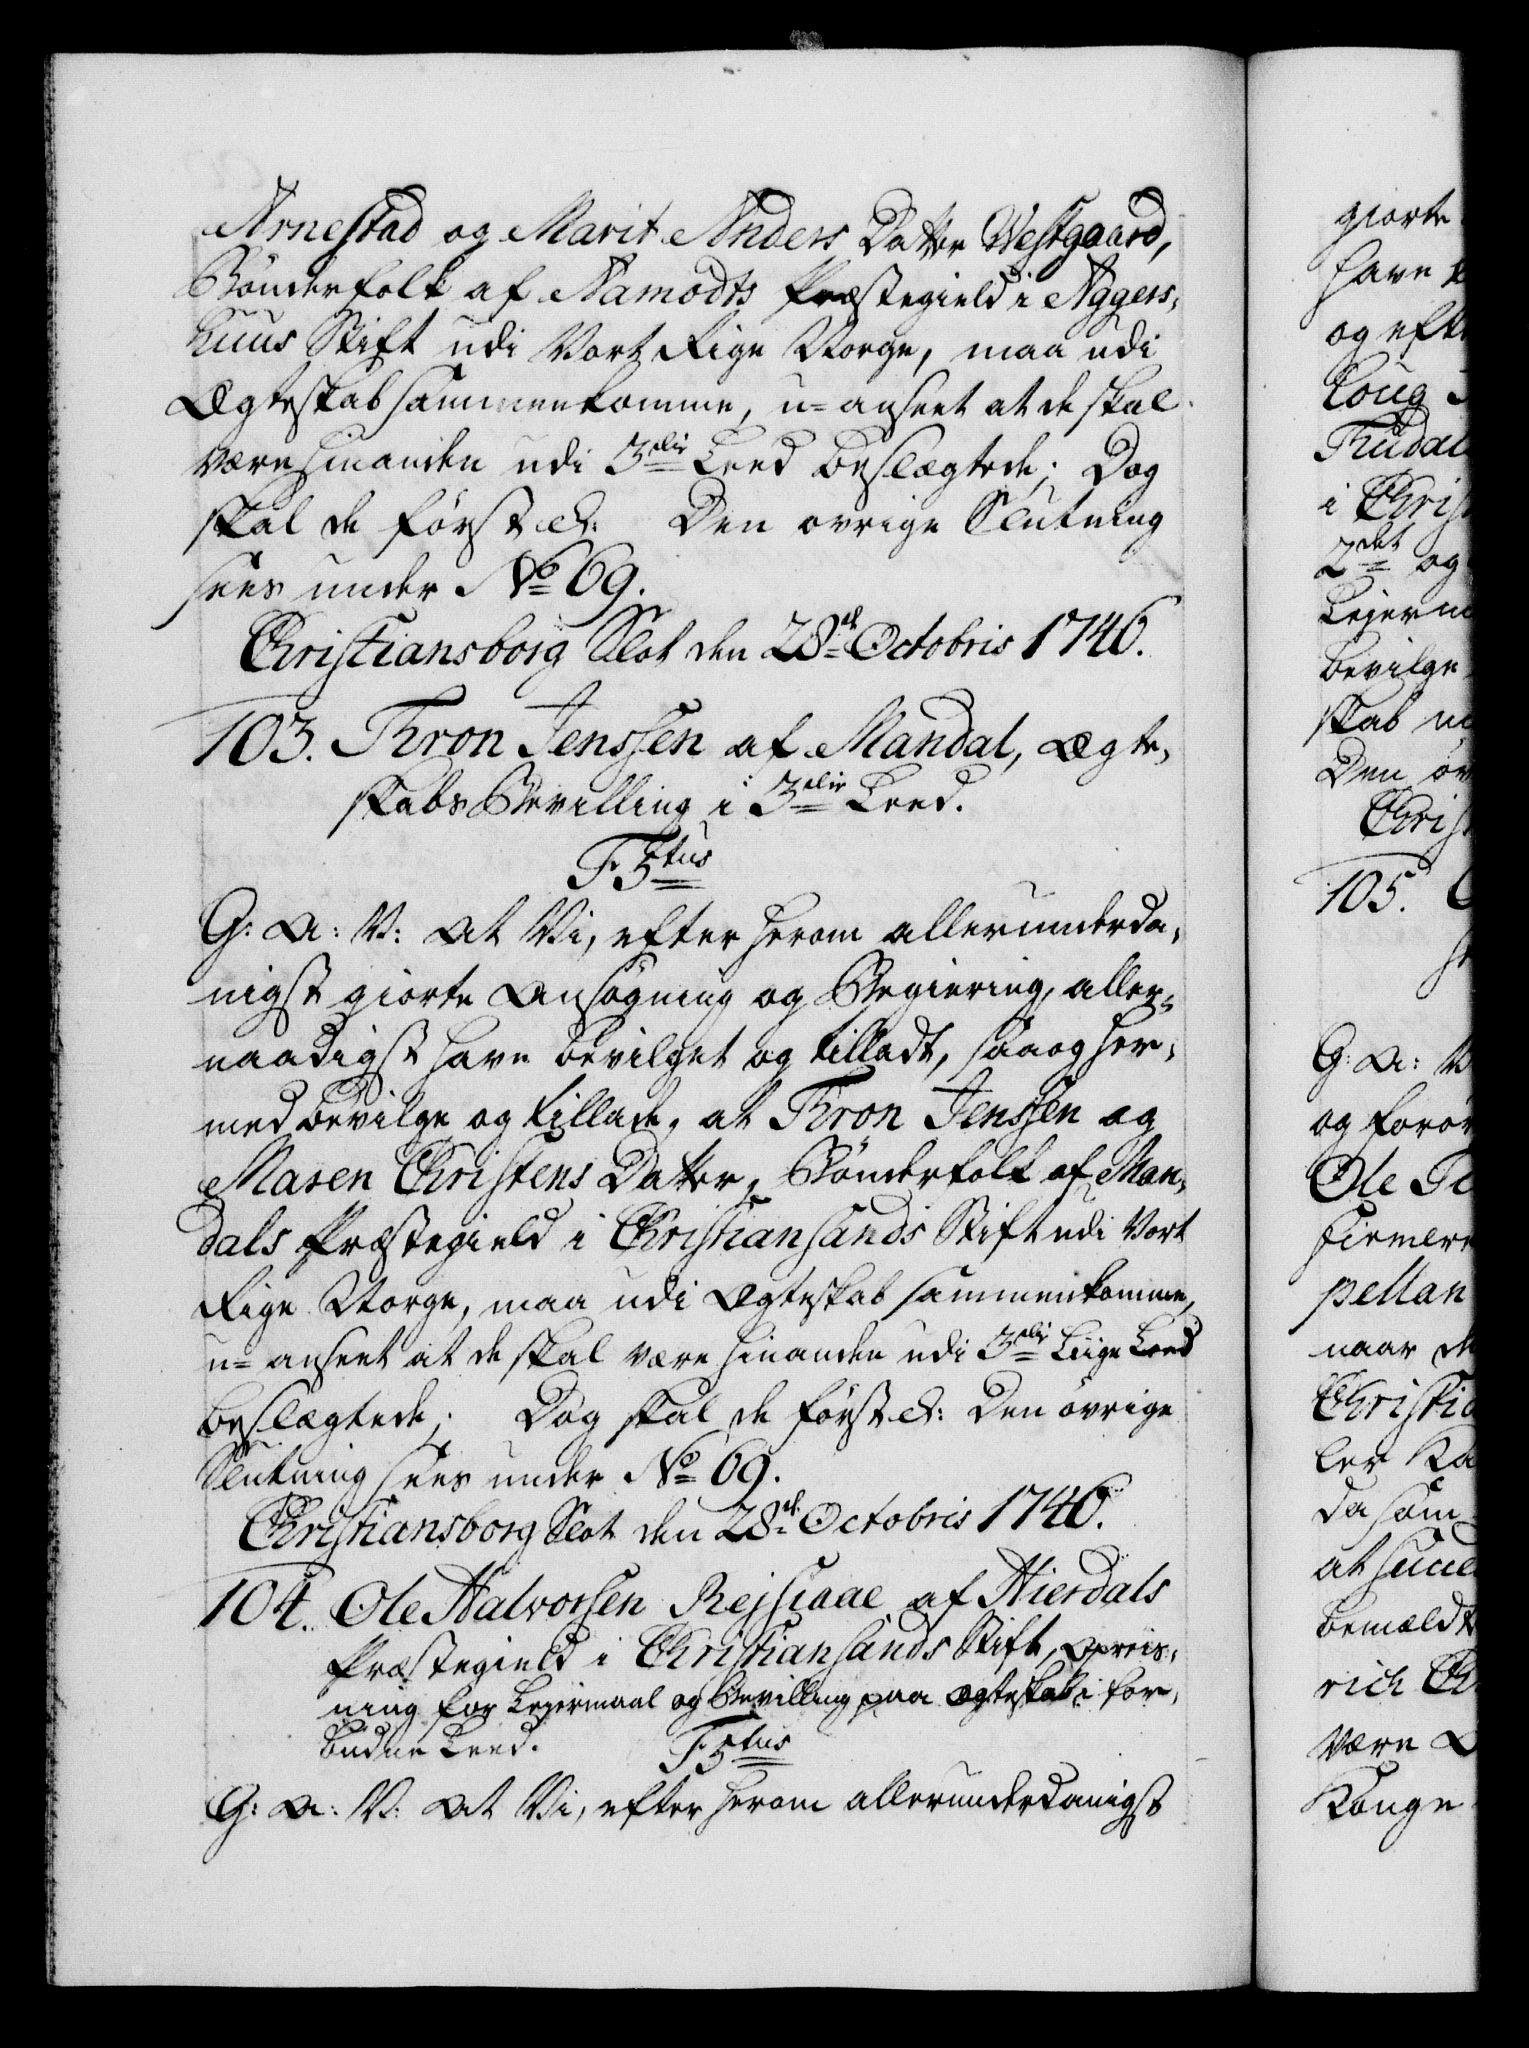 Arnestad og Marit Anders Datter Westgaard,
Bønderfolk af Aamodts Præstegield i Aggers-
huus Stift udi Vort Rige Norge, maa udi
Ægteskab sammenkomme, u=anseet at de skal
være hinanden udi 3die Leed beslægtede; Dog
skal de først &: Den øvrige Slutning
sees under No 69.
Christiansborg Slot den 28de Octobris 1746.
103. Thron Jenssen af Mandal, Ægte-
skabs Bevilling i 3die Leed.
F5tus
G: A: V: At Vi, efter herom allerunderda-
nigst giorte Ansøgning og Begiering, aller-
naadigst have bevilget og tilladt, saa og her-
med bevilge og tillade, at Thron Jenssen og
Maren Christens Datter, Bønderfolk af Man-
dals Præstegield i Christiansands Stift udi Vort
Rige Norge, maa udi Ægteskab sammenkomme,
u=anseet at de skal være hinanden udi 3die Liige Leed
beslægtede; Dog skal de først &: Den øvrige
Slutning sees under No 69.
Christiansborg Slot den 28de Octobris 1746.
104. Ole Halvorsen Rejsiaae af Hierdals
Præstegield i Christiansands Stift, Opreis-
ning for Lejermaal og Bevilling paa Ægteskab i for-
budne Leed. F5tus
G: A: V: At Vi, efter herom allerunderdanigst
giorte
have
og efte
Loug
i Chris
2det og
Lejerm
bevilge
skab
Den øv
Chris
105.
G: A: V
og foror
Ole
pellan
naar de
Christia
ler Ka
da som
at
bemældt
rich Ch
være
Konge